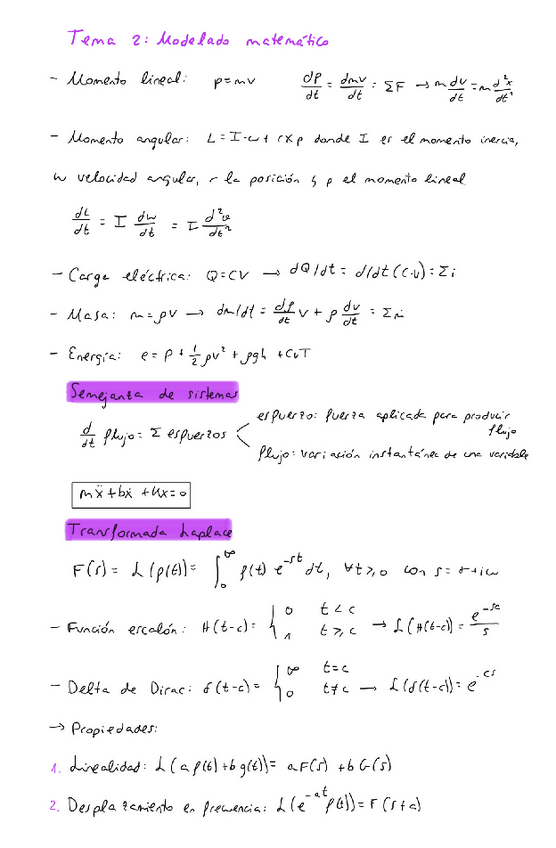 Tema 2: Modelado matemático
- Momento lineal: p=mv dp/dt = dmv/dt = ΣF → m dv/dt = m d²x/dt²
- Momento angular: L = I·ω + r×p donde I es el momento inercia,
w velocidad angular, r la posición y p el momento lineal
dL/dt = I dw/dt = I d²φ/dt²
- Carga eléctrica: Q=CV → dQ/dt = d/dt (C·v) = Σi
- Masa: m=ρV → dm/dt = dρ/dt V + ρ dv/dt = Σṁ
- Energía: e = P + 1/2 ρv² + ρgh + CvT
Semejanza de sistemas
d/dt flujo = Σ esfuerzos
esfuerzo: fuerza aplicada para producir
flujo
flujo: variación instantánea de una variable
mẍ+bẋ+kx=0
Transformada Laplace
F(s) = L(f(t)) = ∫₀^∞ f(t) e^-st dt, ∀t≥0 con s=σ+iω
- Función escalón: H(t-c) = { 0 t<c
1 t≥c → L(H(t-c)) = e^-sc/s
- Delta de Dirac: δ(t-c) = { ∞ t=c
0 t≠c → L(δ(t-c)) = e^-cs
→ Propiedades:
1. Linealidad: L(a f(t)+b g(t)) = aF(s) + bG(s)
2. Desplazamiento en frecuencia: L(e^-at f(t)) = F(s+a)